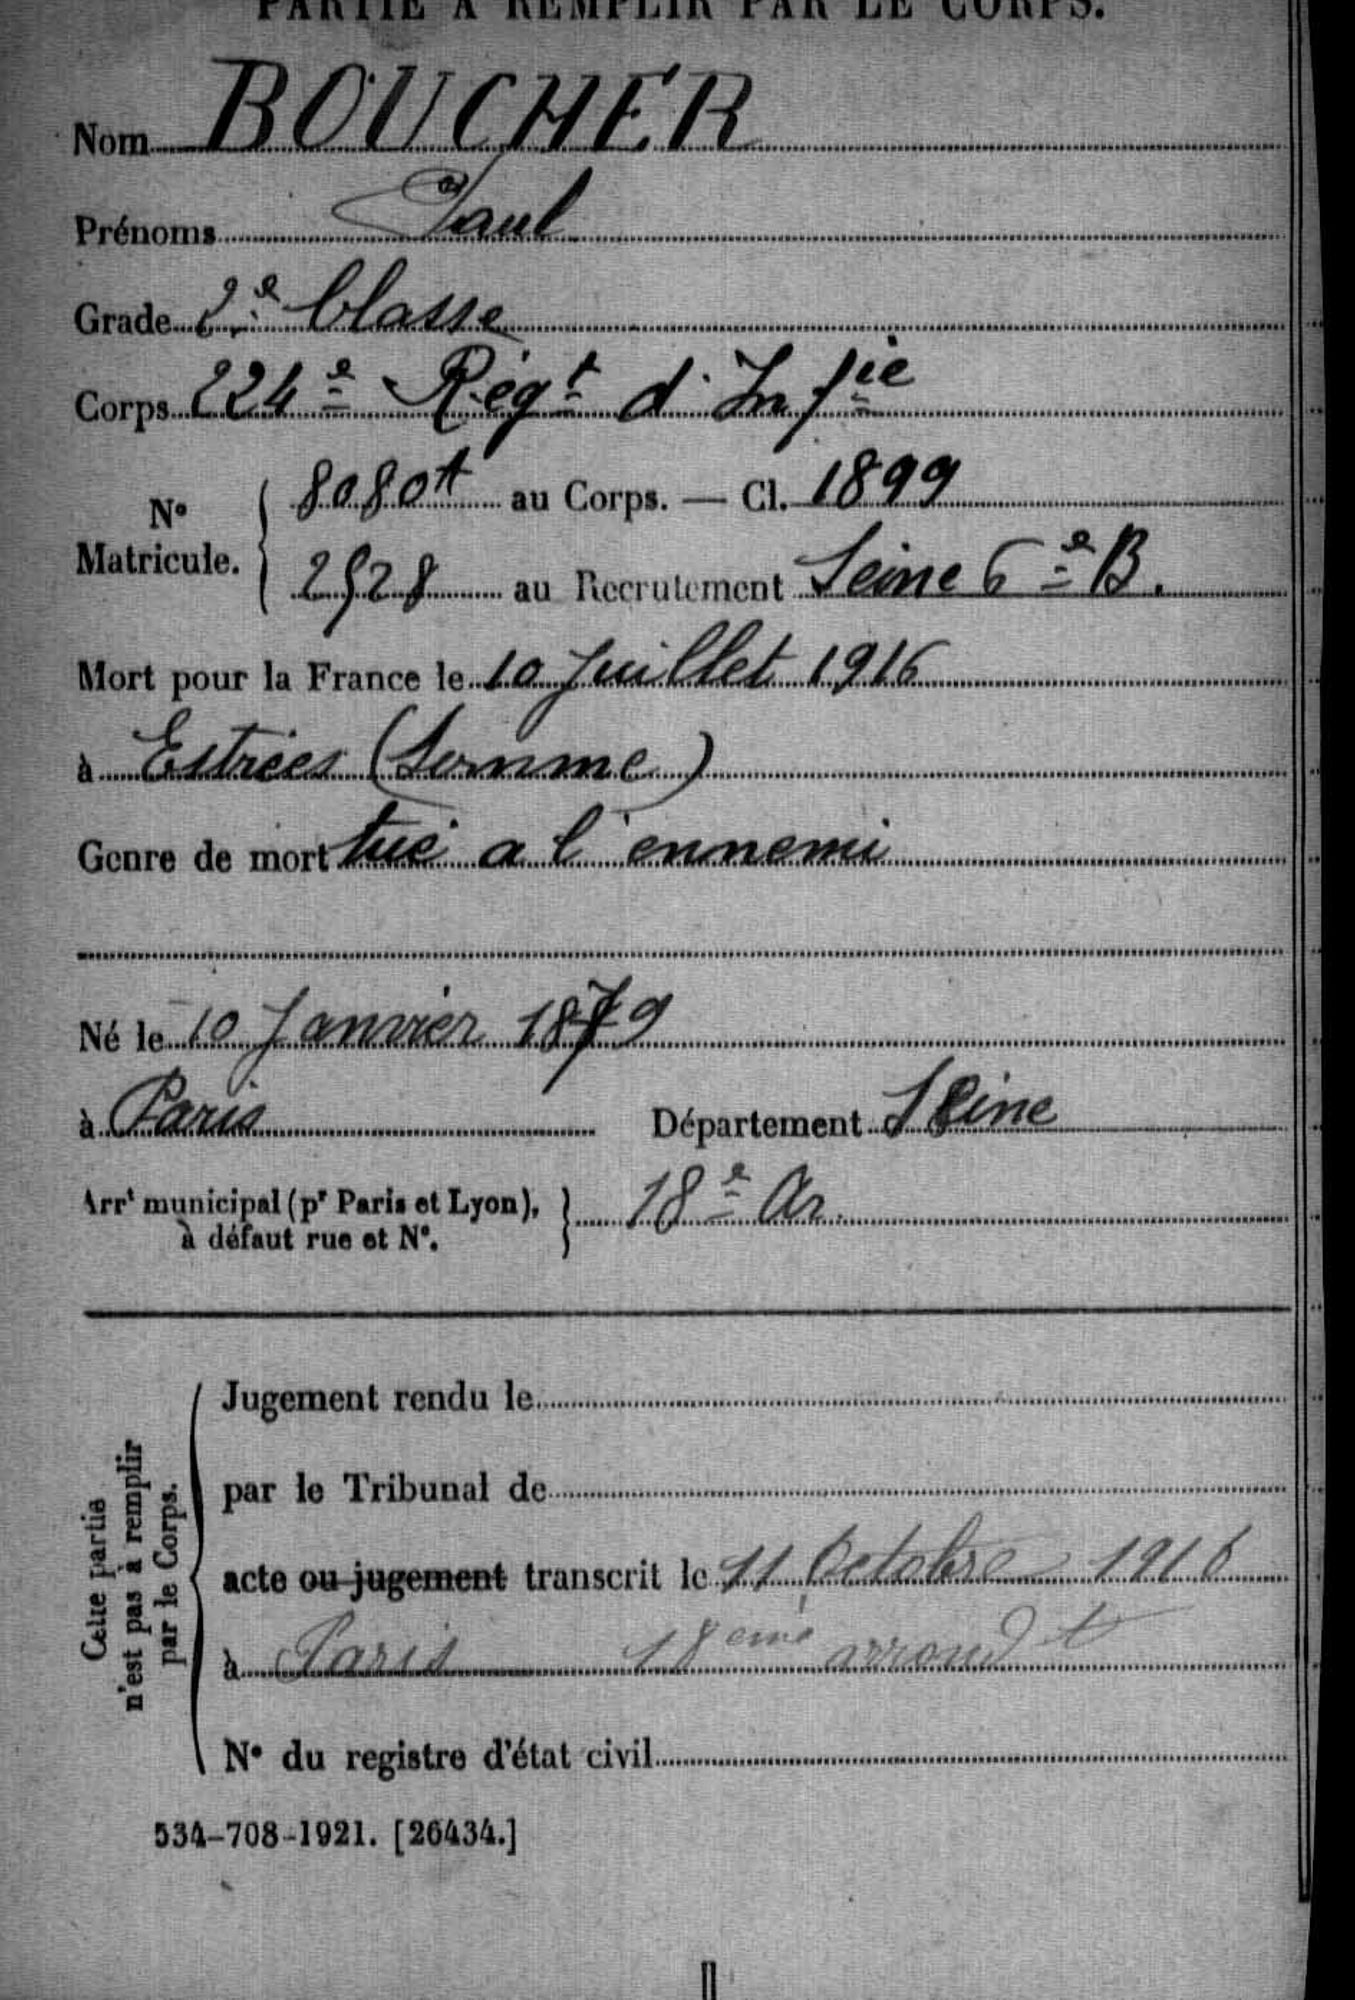 PARTIE À REMPLIR PAR LE CORPS.
Nom BOUCHER
Prénoms Paul
Grade 2e Classe
Corps 224e Régt d'Infie
No Matricule. 8080A au Corps. — Cl. 1899
2528 au Recrutement Seine 6e B.
Mort pour la France le 10 Juillet 1916
à Estrées (Somme)
Genre de mort tué a l'ennemi
Né le 10 Janvier 1879
à Paris Département Seine
Arrt municipal (pr Paris et Lyon), 18e Ar.
à défaut rue et No.
Cette partie n'est pas à remplir par le Corps.
Jugement rendu le
par le Tribunal de
acte ou jugement transcrit le 11 Octobre 1916
à Paris 18eme arrondt
No du registre d'état civil
534-708-1921. [26434.]